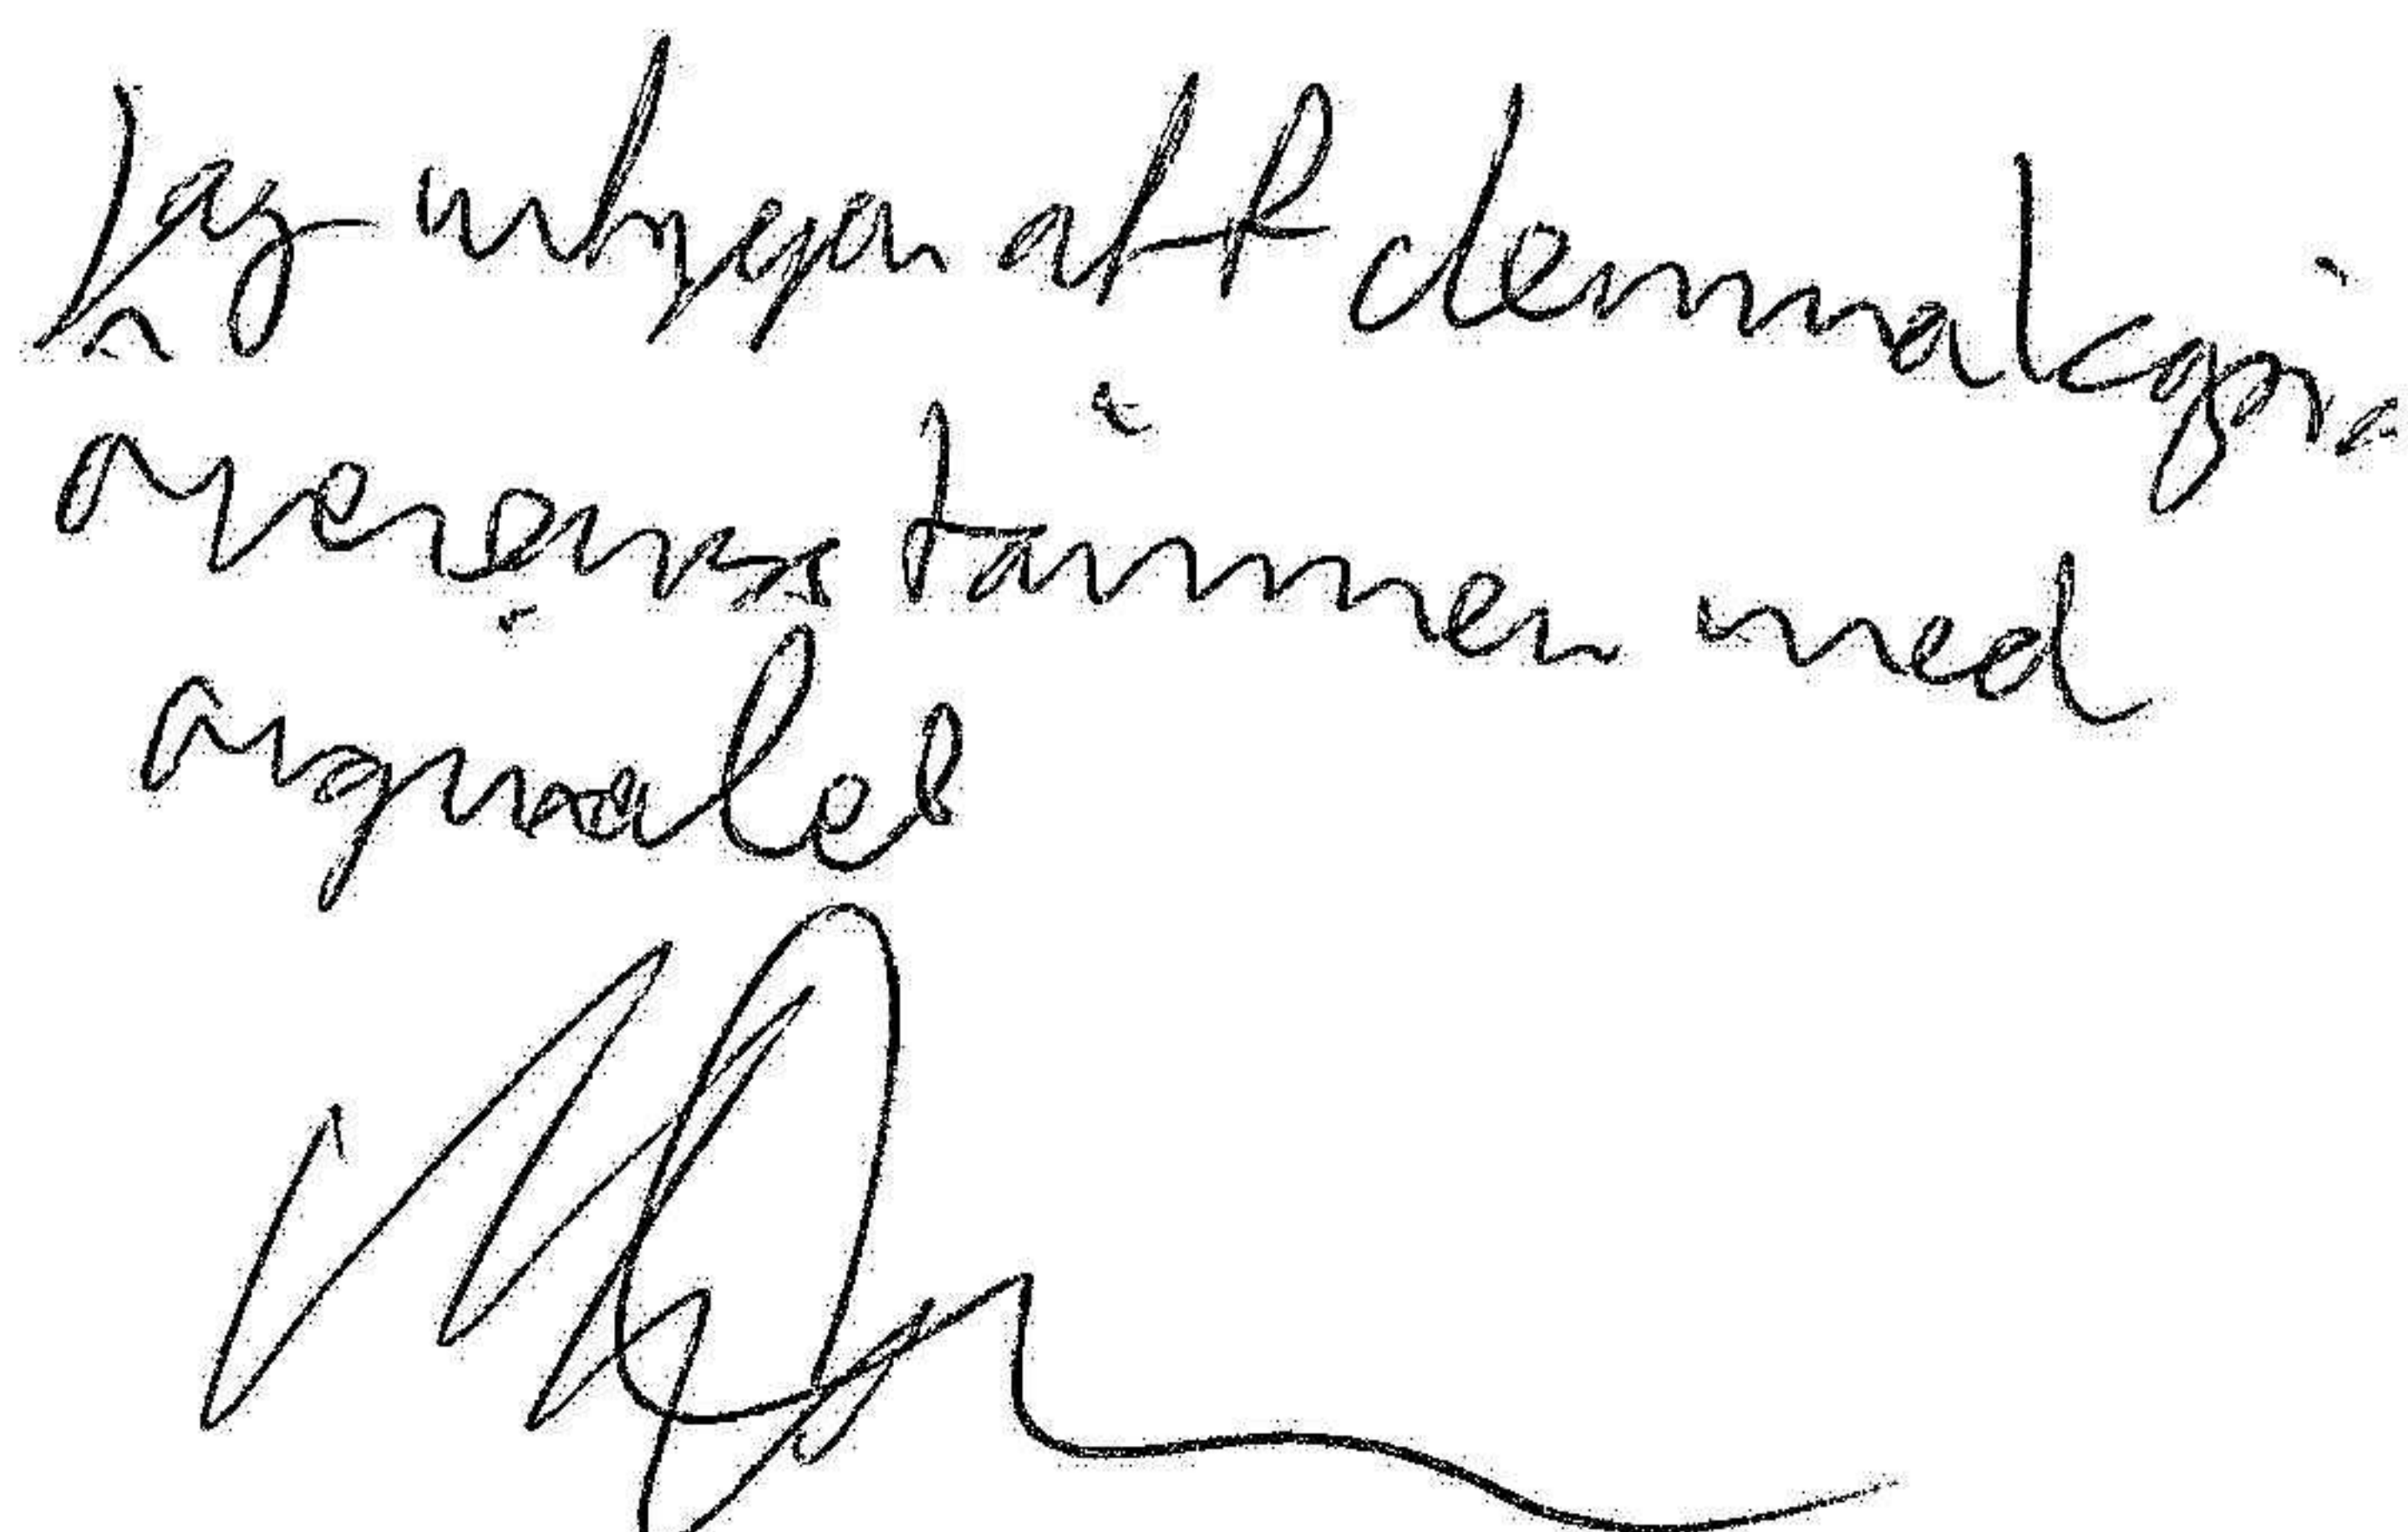 Jag intygar att denna kopia
överensstämmer med
originalet